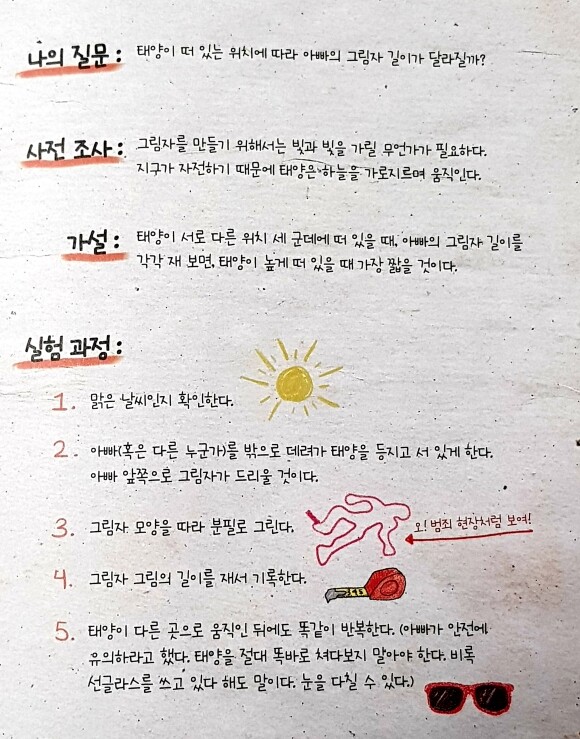 나의 질문 : 태양이 떠 있는 위치에 따라 아빠의 그림자 길이가 달라질까?
사전 조사 : 그림자를 만들기 위해서는 빛과 빛을 가릴 무언가가 필요하다.
지구가 자전하기 때문에 태양은 하늘을 가로지르며 움직인다.
가설 : 태양이 서로 다른 위치 세 군데에 떠 있을 때, 아빠의 그림자 길이를
각각 재 보면, 태양이 높게 떠 있을 때 가장 짧을 것이다.
실험 과정 :
1. 맑은 날씨인지 확인한다.
2. 아빠(혹은 다른 누군가)를 밖으로 데려가 태양을 등지고 서 있게 한다.
아빠 앞쪽으로 그림자가 드리울 것이다.
3. 그림자 모양을 따라 분필로 그린다.
오! 범죄 현장처럼 보여!
4. 그림자 그림의 길이를 재서 기록한다.
5. 태양이 다른 곳으로 움직인 뒤에도 똑같이 반복한다. (아빠가 안전에
유의하라고 했다. 태양을 절대 똑바로 쳐다보지 말아야 한다. 비록
선글라스를 쓰고 있다 해도 말이다. 눈을 다칠 수 있다.)